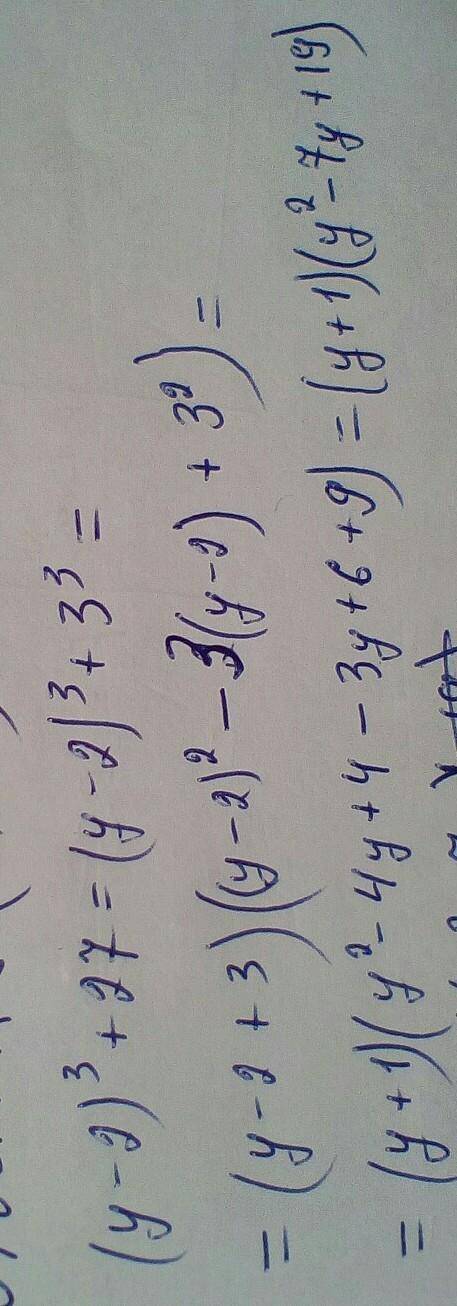 (y-2)³ + 27 = (y-2)³ + 3³ =
= (y-2+3)((y-2)² - 3(y-2) + 3²) =
= (y+1)(y² - 4y + 4 - 3y + 6 + 9) = (y+1)(y² - 7y + 19)